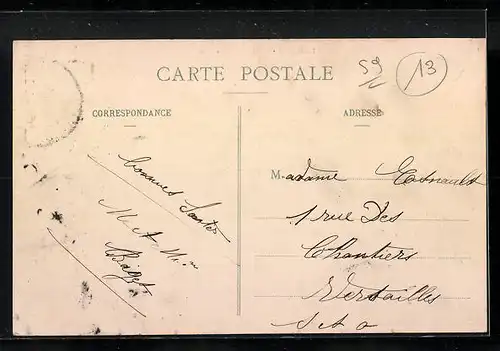 CARTE POSTALE
59
13
CORRESPONDANCE
ADRESSE
Bonnes Santés
M et Mme
Madame Esnault
1 rue Des
Chantiers
Versailles
S et O